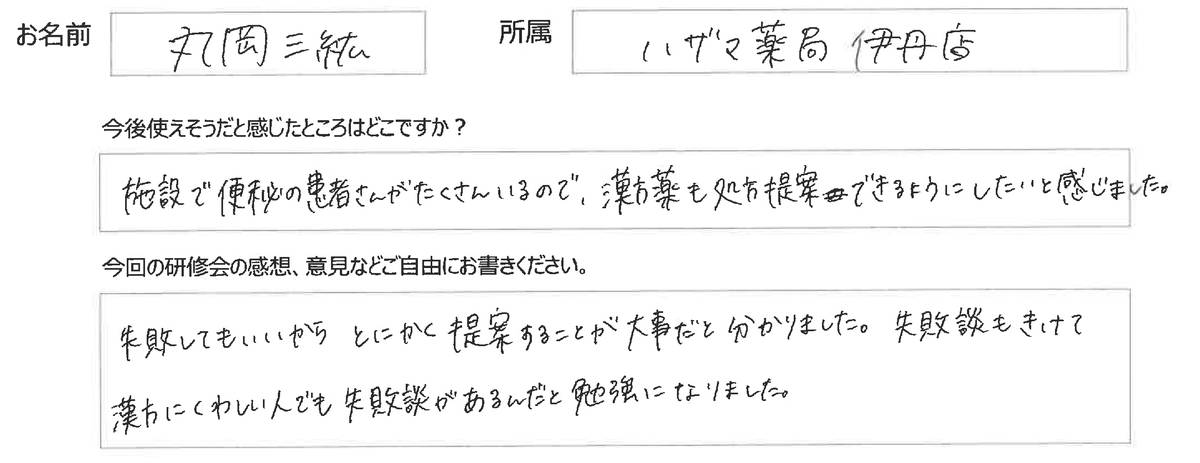 お名前 丸岡三紘 所属 ハザマ薬局 伊丹店
今後使えそうだと感じたところはどこですか？
施設で便秘の患者さんがたくさんいるので、漢方薬も処方提案できるようにしたいと感じました。
今回の研修会の感想、意見などご自由にお書きください。
失敗してもいいから とにかく提案することが大事だと分かりました。失敗談もきけて
漢方にくわしい人でも失敗談があるんだと勉強になりました。